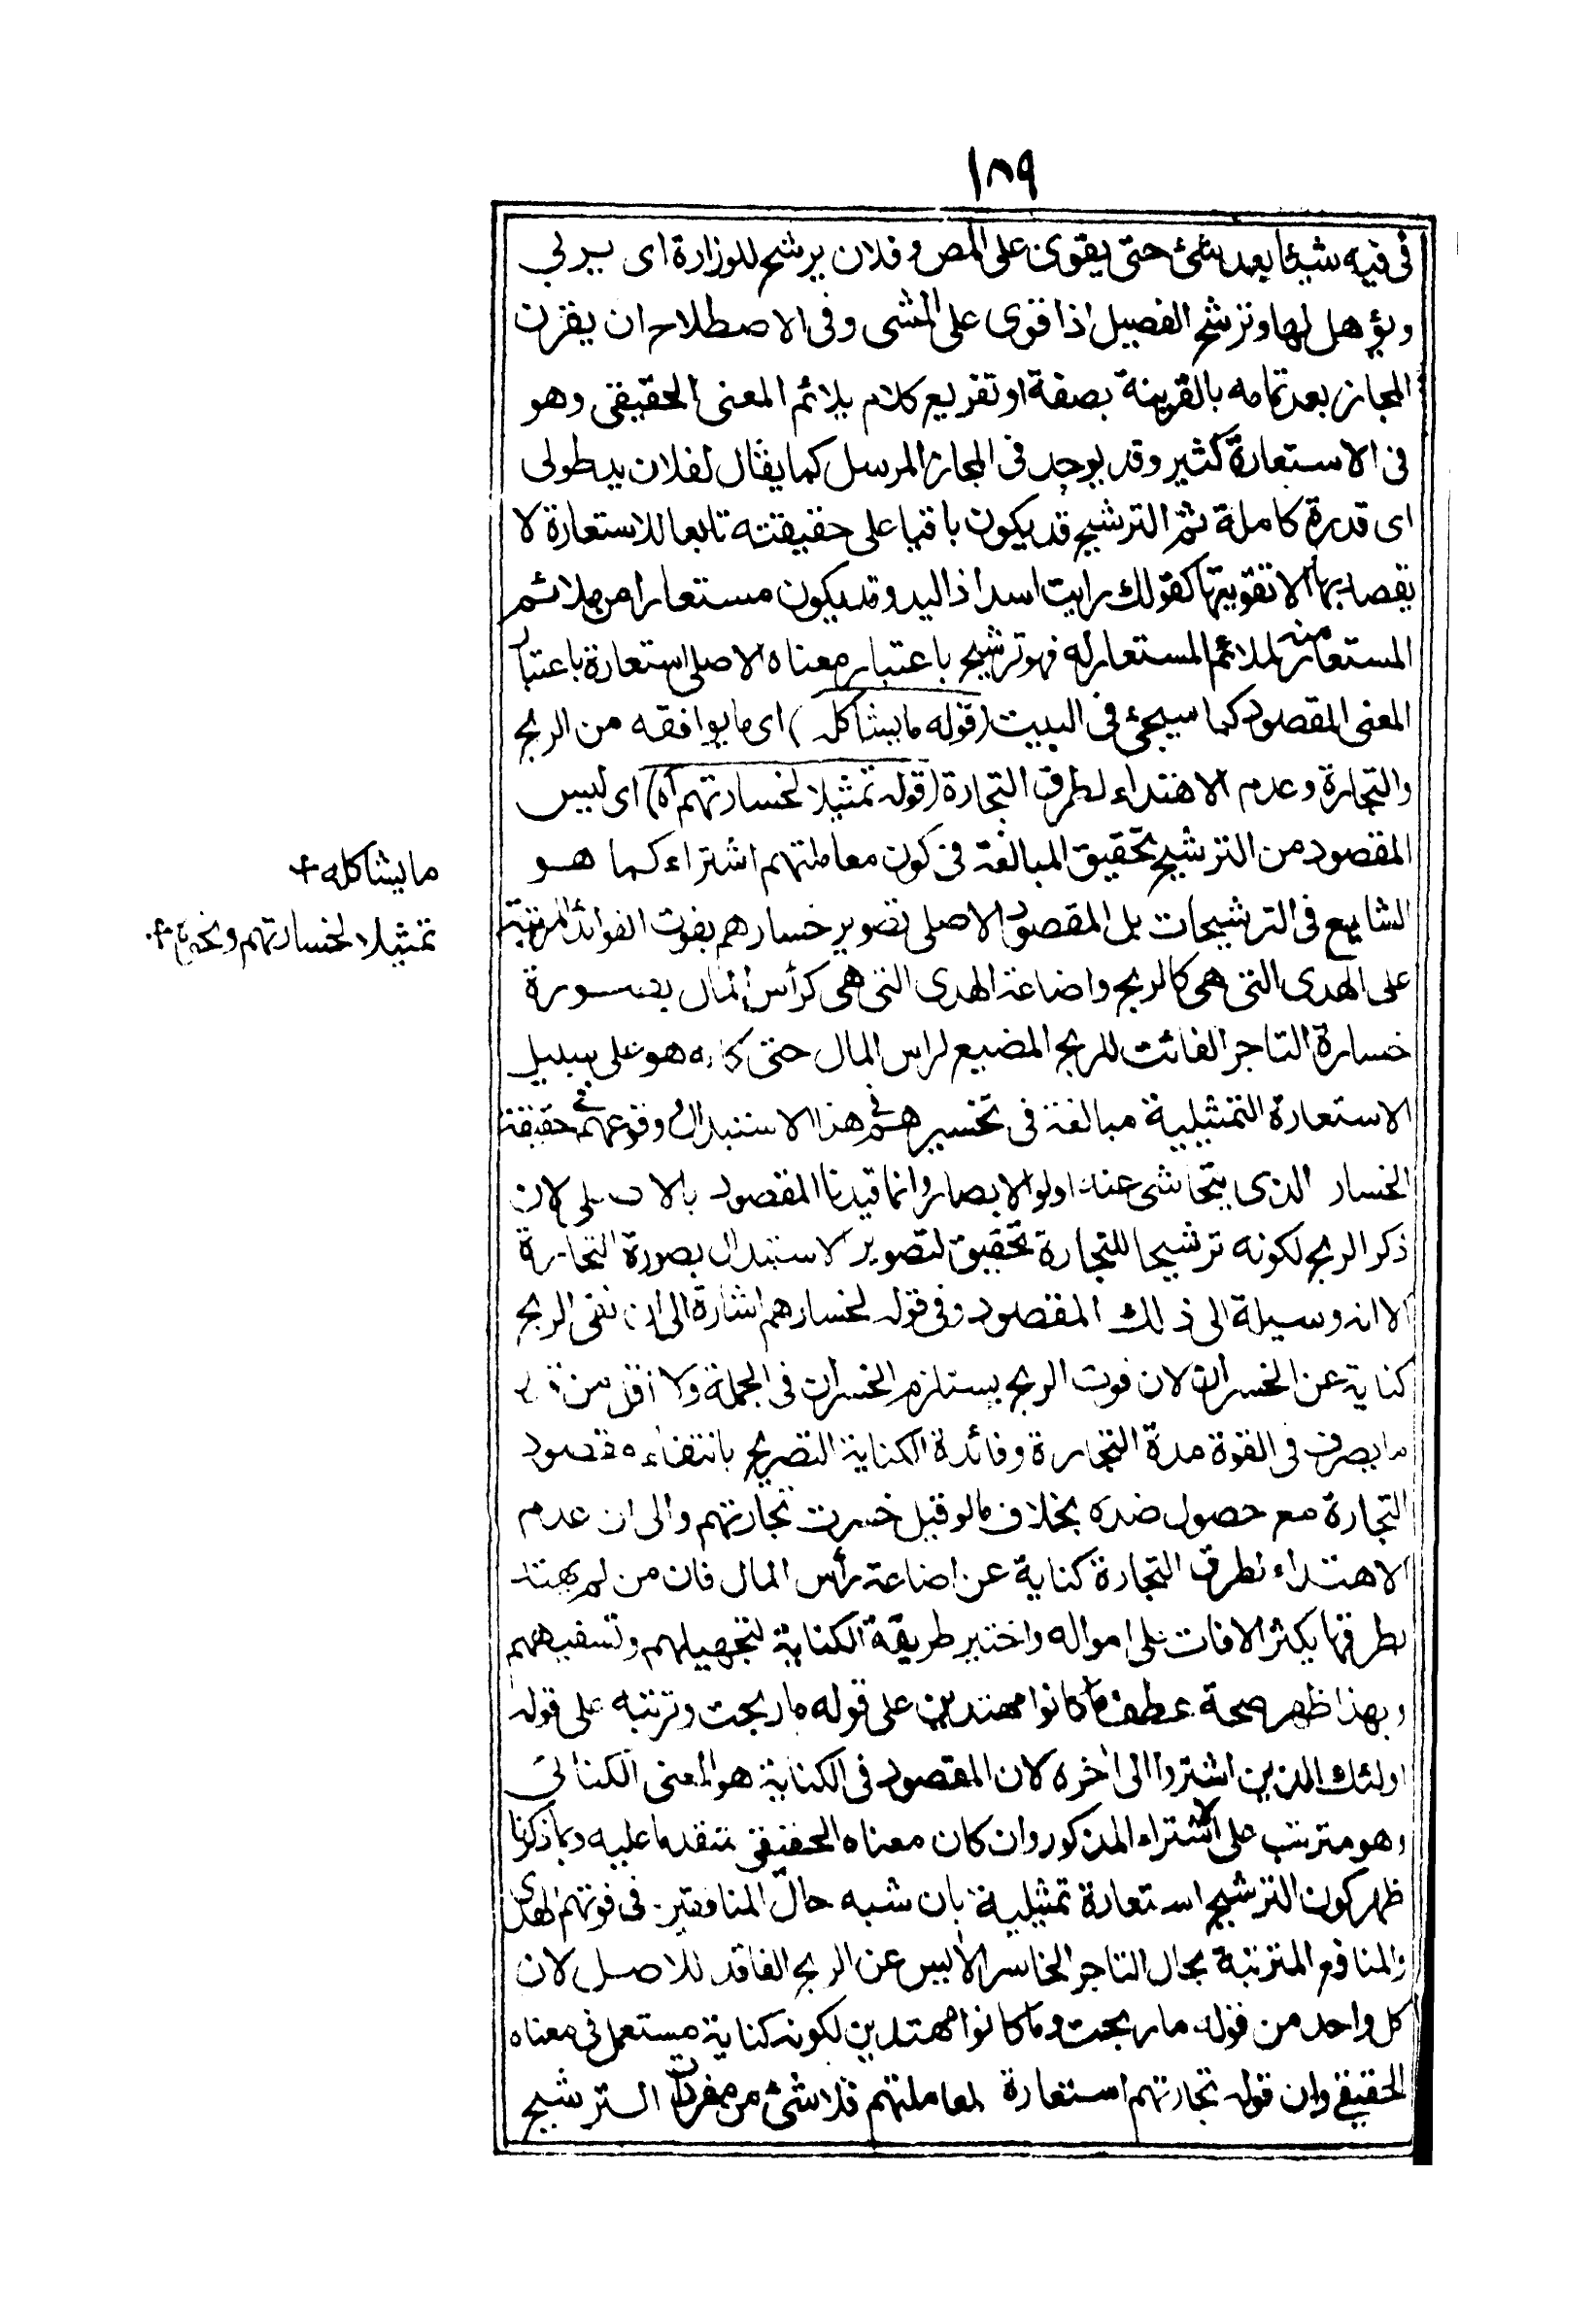 ١٨٩
فى فيه شيئا بعد شئ حتى يقوى على المص وفلان يرشح للوزارة اى يربى
ويؤهل لها وترشح الفصيل اذا قوى على المشى وفى الاصطلاح ان يقرن
المجاز بعد تمامه بالقرينة بصفة او تفريع كلام يلائم المعنى الحقيقى وهو
فى الاستعارة كثير وقد يوجد فى المجاز المرسل كما يقال لفلان يد طولى
اى قدرة كاملة ثم الترشيح قد يكون باقيا على حقيقته تابعا للاستعارة لا
يقصد بها الا تقويتها كقولك رايت اسدا ذا اليد وقد يكون مستعارا من ملائم
المستعار منه لملائم المستعار له فهو ترشيح باعتبار معناه الاصلى استعارة باعتبار
المعنى المقصود كما سيجئ فى البيت (قوله ما يشاكله) اى ما يوافقه من الربح
والتجارة وعدم الاهتداء لطرق التجارة (قوله تمثيلا لخسارتهم اه) اى ليس
المقصود من الترشيح تحقيق المبالغة فى كون معاملتهم اشتراء كما هو
الشايع فى الترشيحات بل المقصود الاصلى تصوير خسارهم بفوت الفوائد المرتبة
على الهدى التى هى كالربح واضاعة الهدى التى هى كرأس المال بصورة
خسارة التاجر الفائت للربح المضيع لراس المال حتى كانه هو على سبيل
الاستعارة التمثيلية مبالغة فى تخسيرهم فى هذا الاستبدال ووقوعهم فى حقيقة
الخسار الذى يتحاشى عنه اولوا الابصار وانما قيدنا المقصود بالاصلى لان
ذكر الربح لكونه ترشيحا للتجارة تحقيق لتصوير الاستبدال بصورة التجارة
الا انه وسيلة الى ذلك المقصود وفى قوله لخسارهم اشارة الى ان نفى الربح
كناية عن الخسران لان فوت الربح يستلزم الخسران فى الجملة ولا اقل من
ما يصرف فى القوة مدة التجارة وفائدة الكناية التصريح بانتفاء مقصود
التجارة مع حصول ضده بخلاف ما لو قيل خسرت تجارتهم والى ان عدم
الاهتداء لطرق التجارة كناية عن اضاعة رأس المال فان من لم يهتد
بطرقها يكثر الافات على امواله واختير طريقة الكناية لتجهيلهم وتسفيههم
وبهذا ظهر صحة عطف ما كانوا مهتدين على قوله ما ربحت وترتبه على قوله
اولئك الذين اشتروا الى اخره لان المقصود فى الكناية هو المعنى الكنائى
وهو مترتب على الاشتراء المذكور وان كان معناه الحقيقى متقدما عليه وبما ذكرنا
ظهر كون الترشيح استعارة تمثيلية بان شبه حال المنافقين فى فوتهم الهدى
والمنافع المترتبة بحال التاجر الخاسر الآيس عن الربح الفاقد للاصل لان
كل واحد من قوله ما ربحت وما كانوا مهتدين لكونه كناية مستعمل فى معناه
الحقيقى وان قوله تجارتهم استعارة لمعاملتهم فلا شئ من مفردات الترشيح
ما يشاكله
تمثيلا لخسارتهم ونحوه